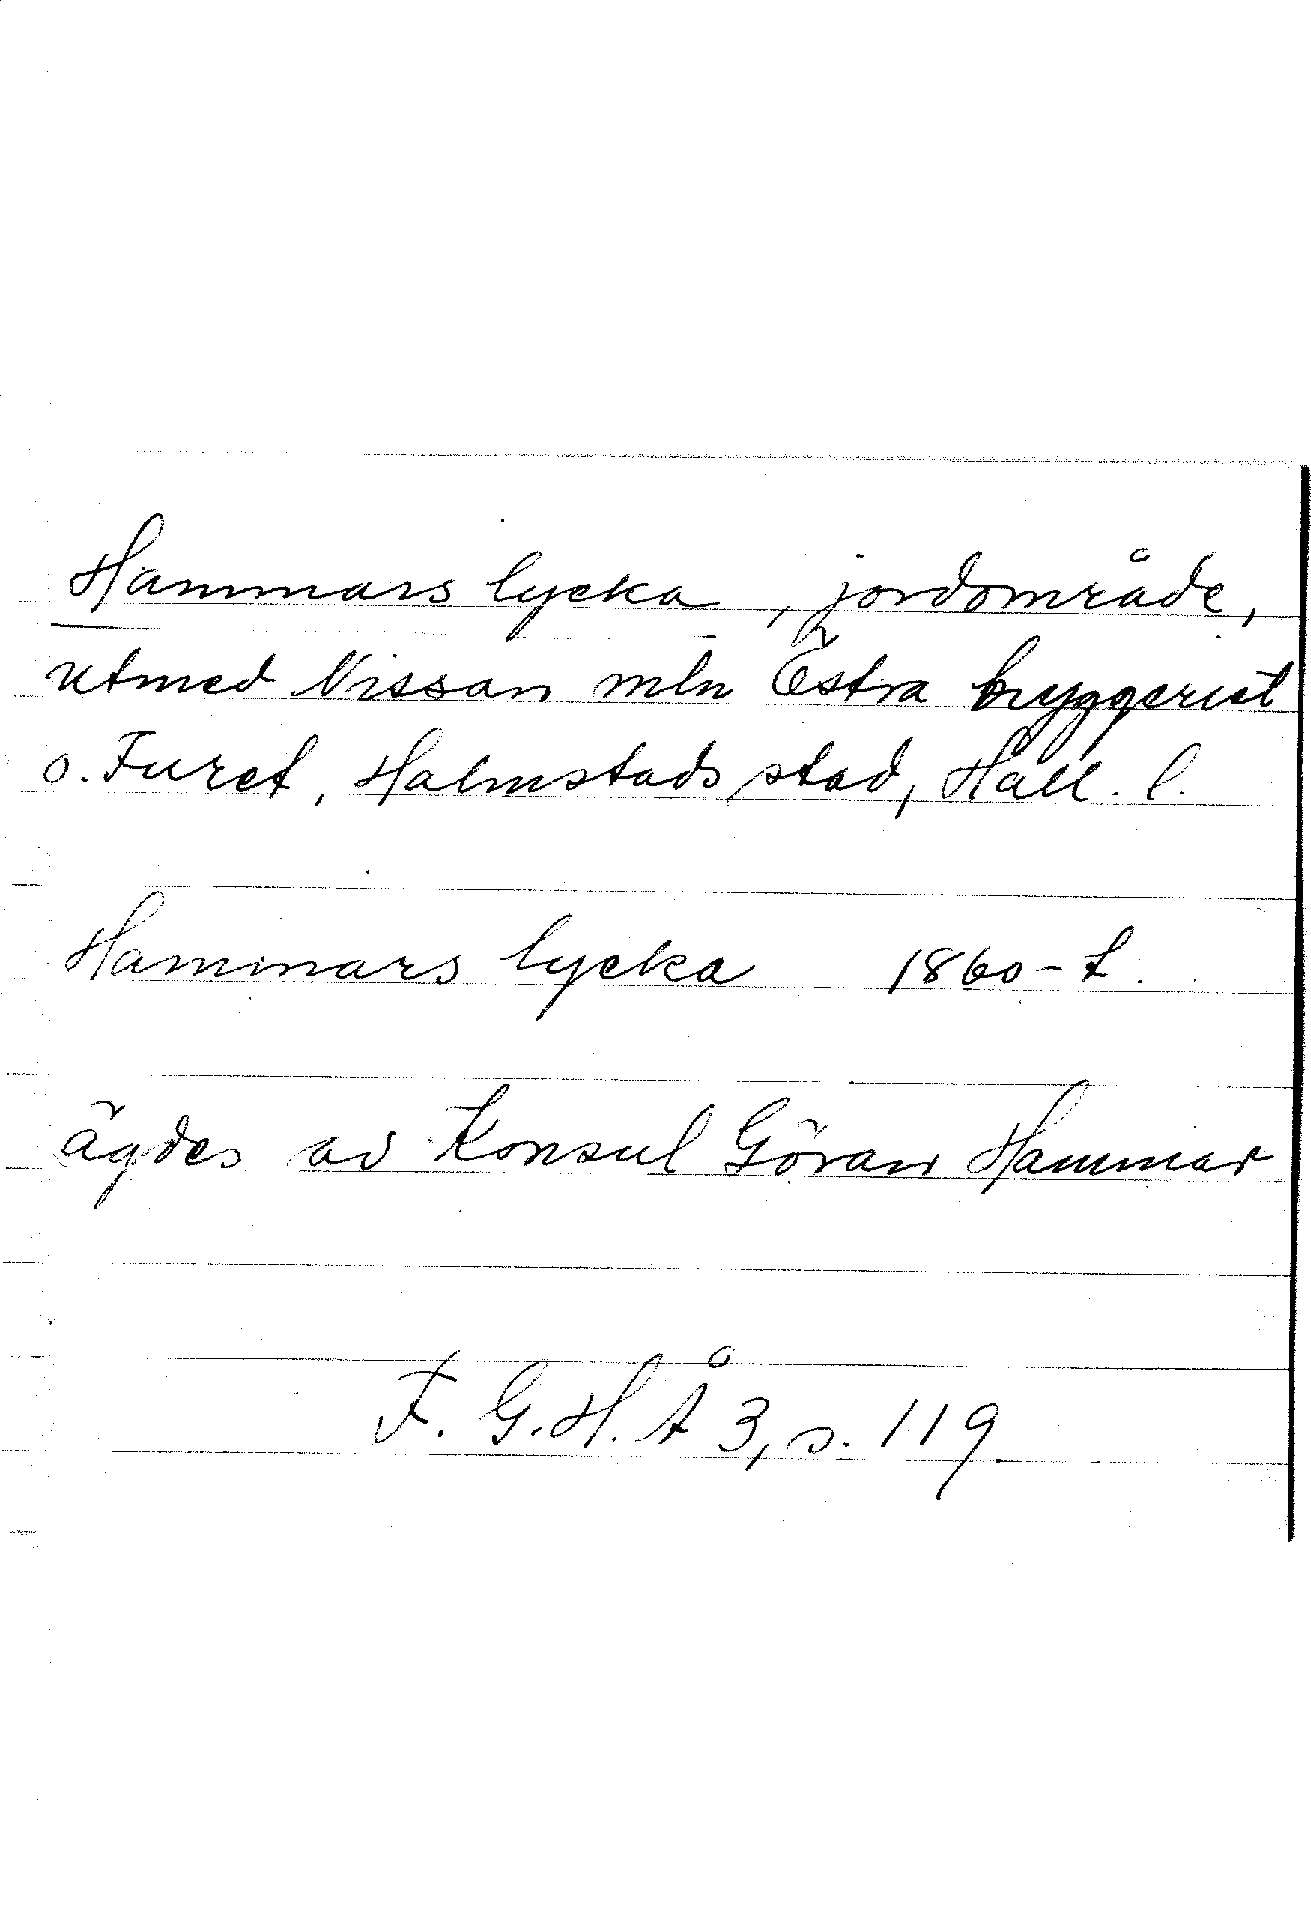 Hammars lycka, jordområde,
utmed Nissan mln Östra bryggeriet
o. Furet, Halmstads stad, Hall. l.
Hammars lycka 1860-t.
ägdes av Konsul Göran Hammar
F. G. H. Å 3, s. 119